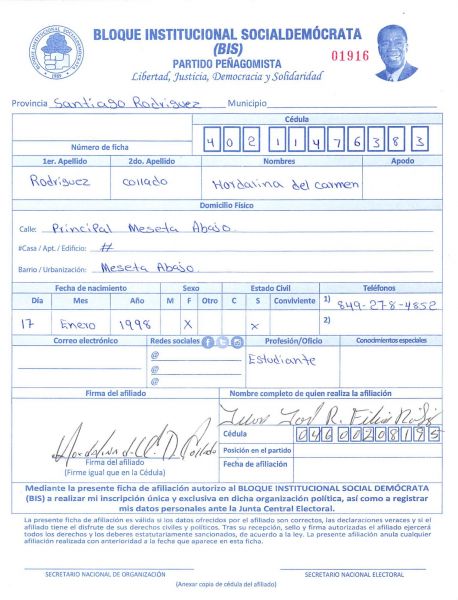 BLOQUE INSTITUCIONAL SOCIALDEMÓCRATA
(BIS)
PARTIDO PEÑAGOMISTA
01916
Libertad, Justicia, Democracia y Solidaridad
Provincia Santiago Rodriguez Municipio
Cédula
Número de ficha 402 1147638 3
1er. Apellido 2do. Apellido Nombres Apodo
Rodriguez collado Mordalina del carmen
Domicilio Físico
Calle: Principal Meseta Abajo.
#Casa / Apt. / Edificio: #
Barrio / Urbanización: Meseta Abajo.
Fecha de nacimiento Sexo Estado Civil Teléfonos
Día Mes Año M F Otro C S Conviviente 1) 849-278-4852
17 Enero 1998 X x 2)
Correo electrónico Redes sociales Profesión/Oficio Conocimientos especiales
@ Estudiante
@
@
Firma del afiliado Nombre completo de quien realiza la afiliación
R.
Cédula 04600208195
Posición en el partido
Firma del afiliado Fecha de afiliación
(Firme igual que en la Cédula)
Mediante la presente ficha de afiliación autorizo al BLOQUE INSTITUCIONAL SOCIAL DEMÓCRATA
(BIS) a realizar mi inscripción única y exclusiva en dicha organización política, así como a registrar
mis datos personales ante la Junta Central Electoral.
La presente ficha de afiliación es válido si los datos ofrecidos por el afiliado son correctos, las declaraciones veraces y si el
afiliado tiene el disfrute de sus derechos civiles y políticos. Tras su recepción, sello y firma autorizadas el afiliado ejercerá
todos los derechos y los deberes estatutariamente sancionados, de acuerdo a la ley. La presente afiliación anula cualquier
afiliación realizada con anterioridad a la fecha que aparece en esta ficha.
SECRETARIO NACIONAL DE ORGANIZACIÓN SECRETARIO NACIONAL ELECTORAL
(Anexar copia de cédula del afiliado)